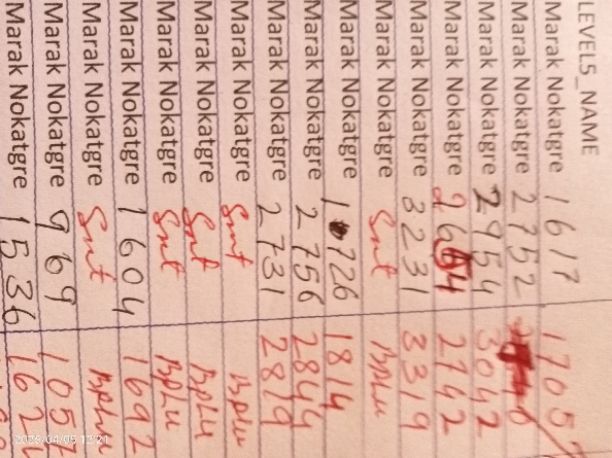 LEVEL5_NAME
Marak Nokatgre 1617 1705
Marak Nokatgre 2752
Marak Nokatgre 2954 3042
Marak Nokatgre 2742
Marak Nokatgre 3231 3319
Marak Nokatgre Snt BPLU
Marak Nokatgre 1726 1814
Marak Nokatgre 2756 2844
Marak Nokatgre 2731 2819
Marak Nokatgre Snt BPLU
Marak Nokatgre Snt BPLU
Marak Nokatgre Snt BPLU
Marak Nokatgre 1604 1692
Marak Nokatgre Snt BPLU
Marak Nokatgre 969 1057
Marak Nokatgre 1536
2026/04/09 12:21